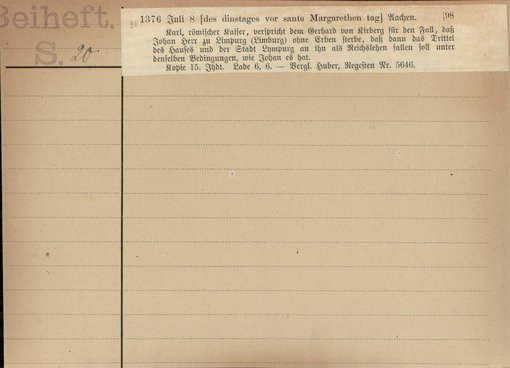 Beiheft.
S. 20
1376 Juli 8 [des dinstages vor sante Margarethen tag] Aachen. [98
Karl, römischer Kaiser, verspricht dem Gerhard von Kirberg für den Fall, daß
Johan Herr zu Lympurg (Limburg) ohne Erben sterbe, daß dann das Drittel
des Hauses und der Stadt Lympurg an ihn als Reichslehen fallen soll unter
denselben Bedingungen, wie Johan es hat.
Kopie 15. Jhdt. Lade 6, 6. — Vergl. Huber, Regesten Nr. 5646.